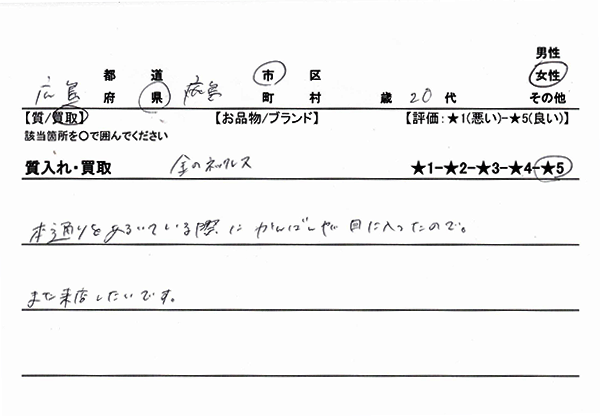 男性
都 道 市 区 女性
広島 府 県 広島 町 村 歳 20 代 その他
【質/買取】 【お品物/ブランド】 【評価:★1(悪い)-★5(良い)】
該当箇所を〇で囲んでください
質入れ・買取 金のネックレス ★1-★2-★3-★4-★5
本通りをあるいている際にかんばんが目に入ったので。
また来店したいです。